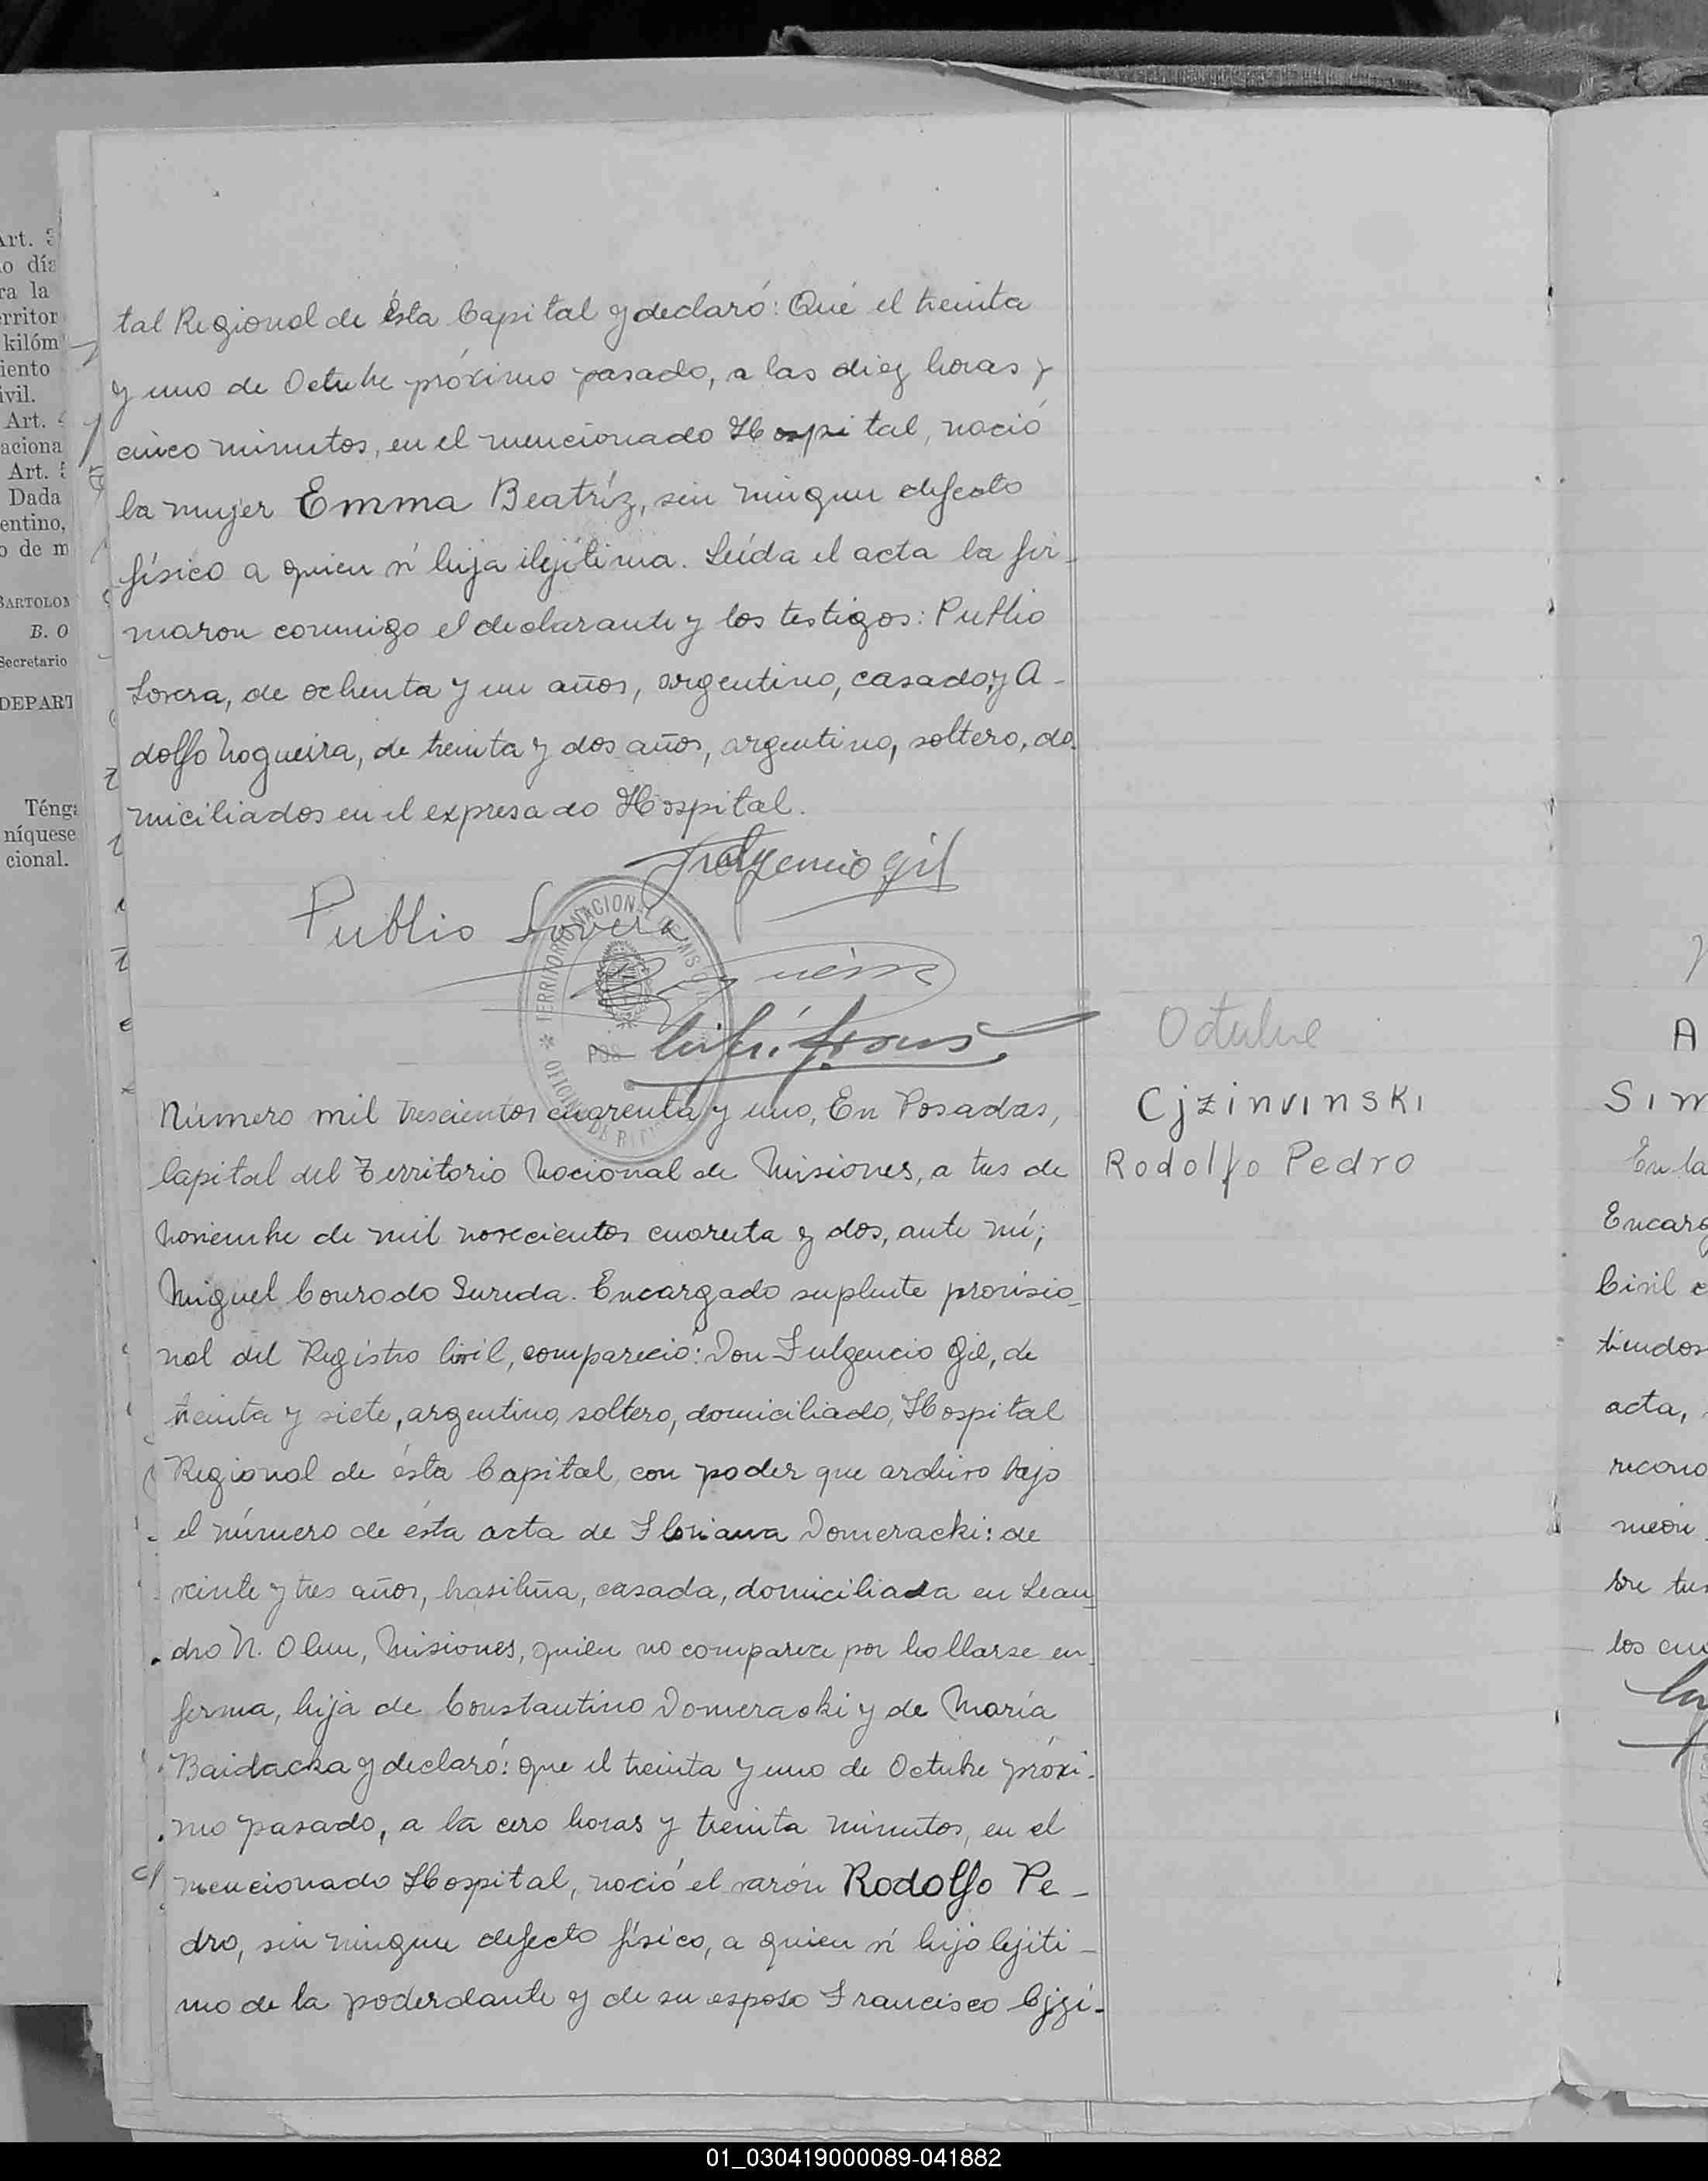 Art. 3
o día
ra la
erritor
kilóm
iento
ivil.
Art. 4
aciona
Art. 5
Dada
entino,
o de m
BARTOLOM
B. O
Secretario
DEPART
Ténga
níquese
cional.
tal Regional de ésta Capital y declaró: Qué el treinta
y uno de Octubre próximo pasado, a las diez horas y
cinco minutos, en el mencionado Hospital, nació
la mujer Emma Beatríz, sin ningun defecto
físico a quien ví hija ilejítima. Leída el acta la fir-
maron conmigo el declarante y los testigos: Publio
Lovera, de ochenta y un años, argentino, casado, y A-
dolfo Nogueira, de treinta y dos años, argentino, soltero, do-
miciliados en el expresado Hospital.
Fulgencio Gil
Publio Lovera
TERRITORIO NACIONAL DE MIS
POS
Octubre
Número mil trescientos cuarenta y uno, En Posadas,
Cjzinvinski
Capital del Territorio Nacional de Misiones, a tres de
Rodolfo Pedro
Noviembre de mil novecientos cuarenta y dos, ante mí;
Miguel Conrado Sureda. Encargado suplente provisio-
nal del Registro Civil, compareció: Don Fulgencio Gil, de
treinta y siete, argentino, soltero, domiciliado, Hospital
Regional de ésta Capital, con poder que archivo bajo
el número de ésta acta de Floriana Domeracki: de
veinte y tres años, brasileña, casada, domiciliada en Lean-
dro N. Alem, Misiones, quien no comparece por hallarse en-
ferma, hija de Constantino Domeracki y de María
Baidacka y declaró: que el treinta y uno de Octubre próxi-
mo pasado, a la cero horas y treinta minutos, en el
mencionado Hospital, nació el varón Rodolfo Pe-
dro, sin ningun defecto físico, a quien ví hijo lejíti-
mo de la poderdante y de su esposo Francisco Cjzi-
A
Sim
En la
Encarg
Civil e
tiendos
acta,
recono
los cu
01_030419000089-041882